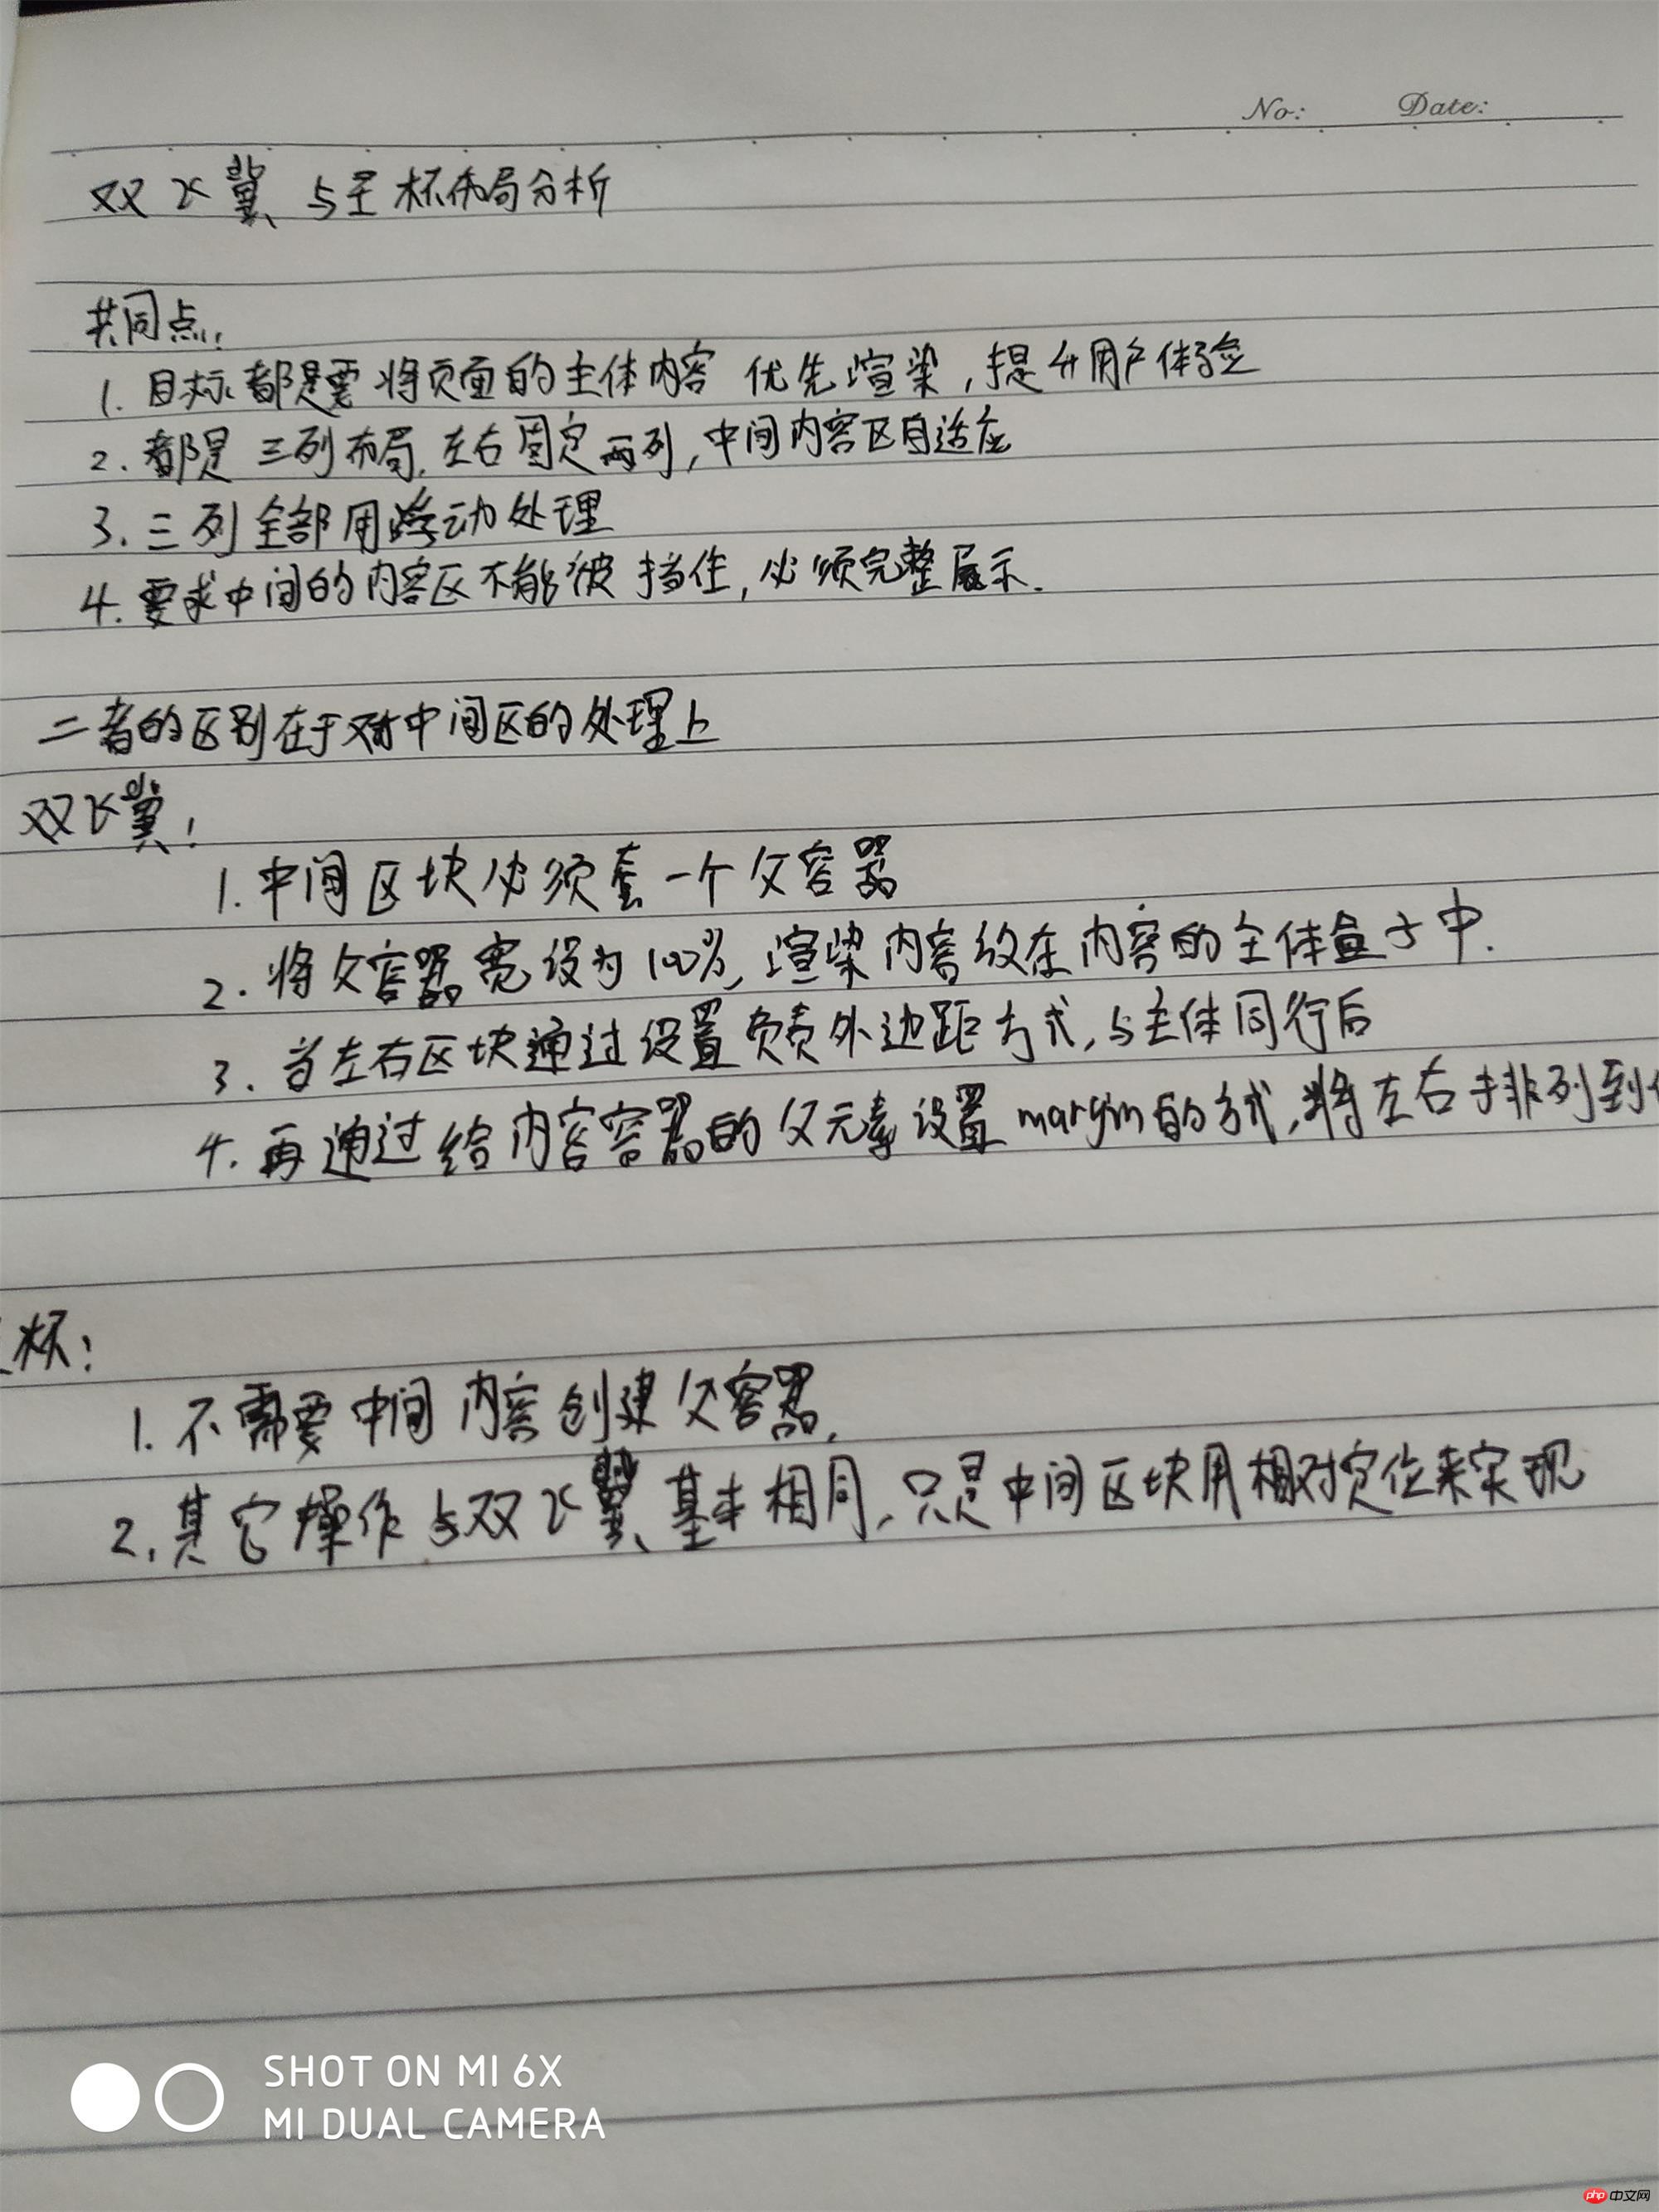 No: Date:
双飞翼 与圣杯布局分析
共同点:
1. 目标都是要将页面的主体内容 优先渲染,提升用户体验
2. 都是 三列布局,左右固定两列,中间内容区自适应
3. 三列全部用浮动处理
4. 要求中间的内容区不能被挡住,必须完整展示.
二者的区别在于对中间区的处理上
双飞翼:
1. 中间区块必须套一个父容器
2. 将父容器宽设为100%,渲染内容放在内容的主体盒子中.
3. 当左右区块通过设置负责外边距方式,与主体同行后
4. 再通过给内容容器的父元素设置margin的方式,将左右手排列到
杯:
1. 不需要中间内容创建父容器.
2. 其它操作与双飞翼基本相同,只是中间区块用相对定位来实现
SHOT ON MI 6X
MI DUAL CAMERA
php 中文网